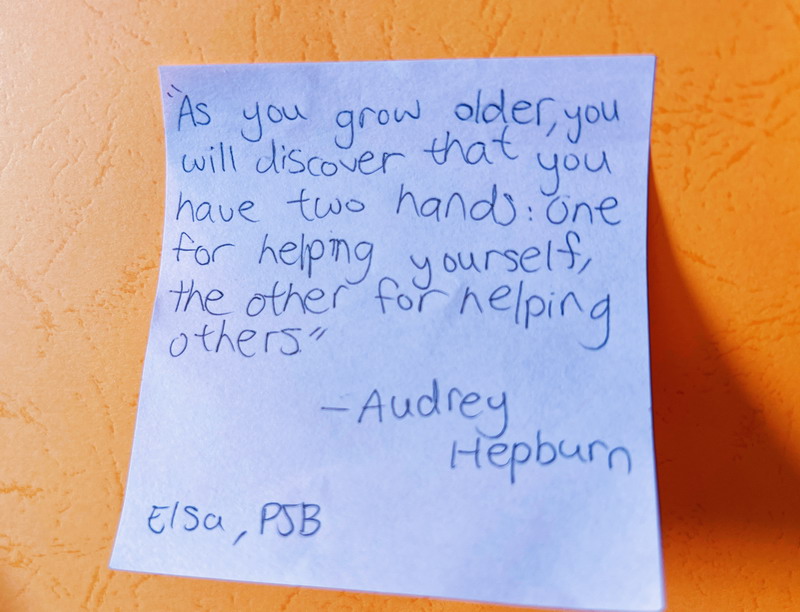 "As you grow older, you
will discover that you
have two hands: one
for helping yourself,
the other for helping
others"
- Audrey
Hepburn
Elsa, PJB